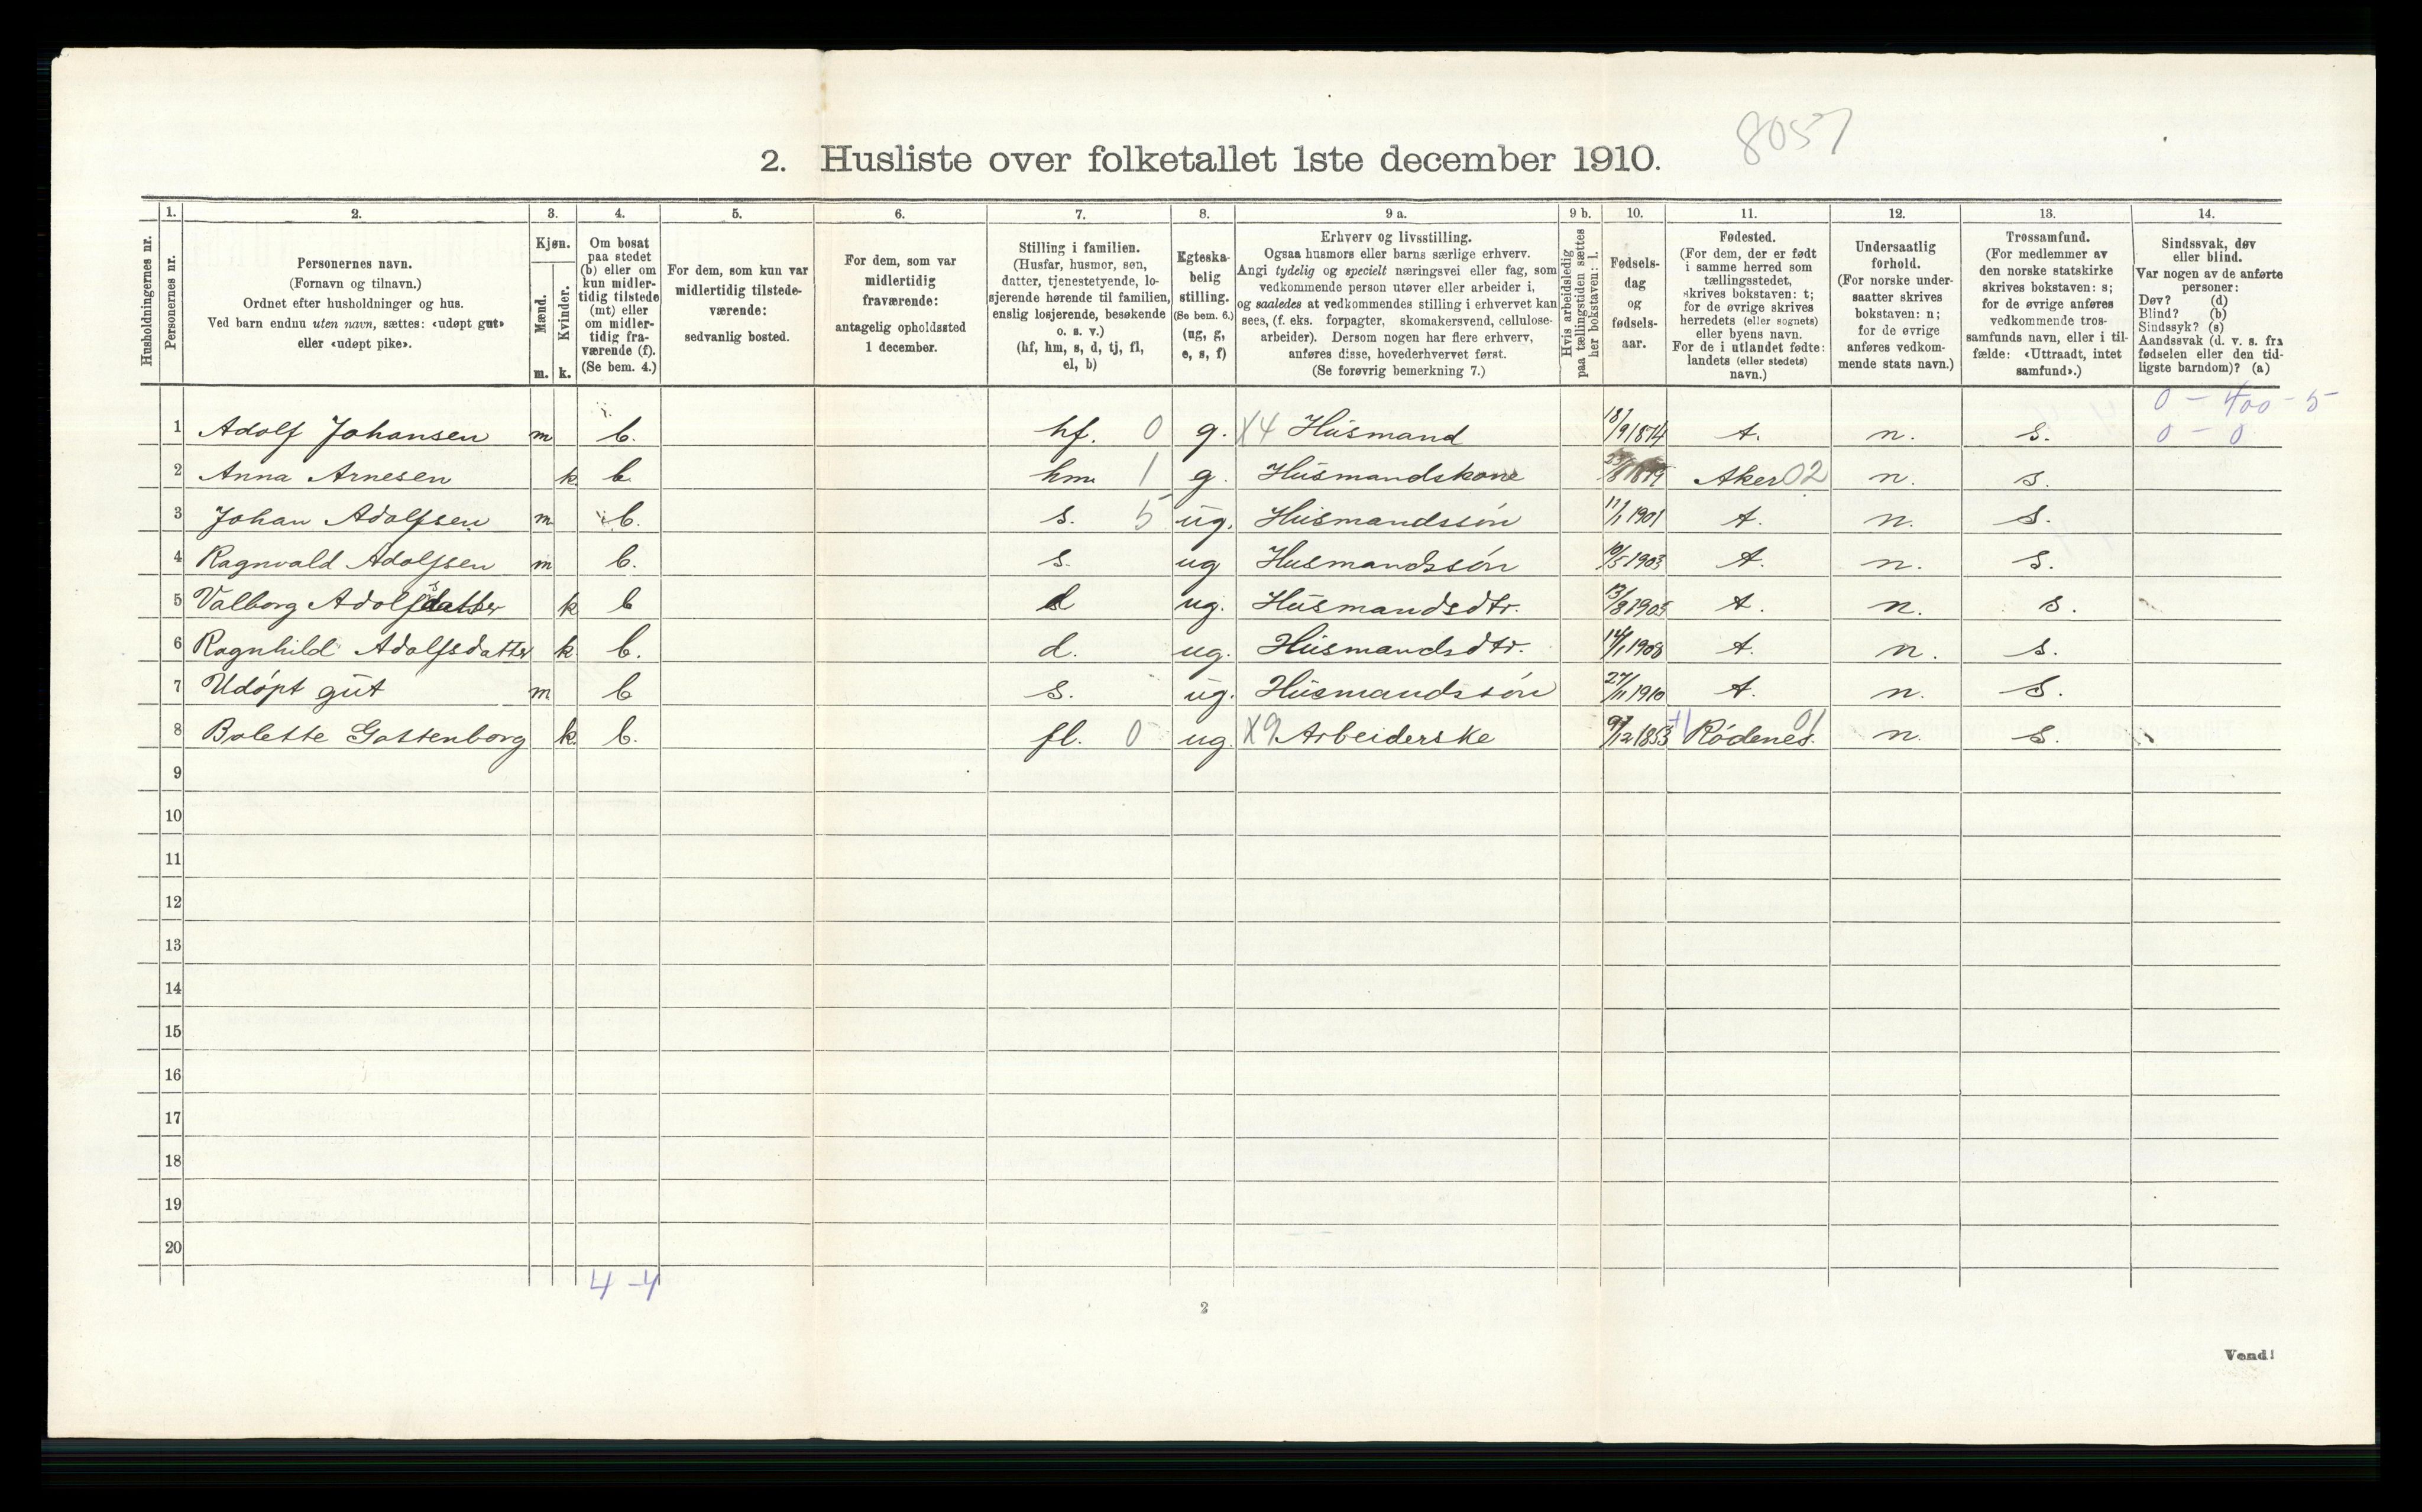 8057
2. Husliste over folketallet 1ste december 1910.
Husholdningernes nr.
1. Personernes nr.
2. Personernes navn. (Fornavn og tilnavn.) Ordnet efter husholdninger og hus. Ved barn endnu uten navn, sættes: «udøpt gut» eller «udøpt pike».
3. Kjøn. Mænd. m. Kvinder. k.
4. Om bosat paa stedet (b) eller om kun midlertidig tilstede (mt) eller om midlertidig fraværende (f). (Se bem. 4.)
5. For dem, som kun var midlertidig tilstedeværende: sedvanlig bosted.
6. For dem, som var midlertidig fraværende: antagelig opholdssted 1 december.
7. Stilling i familien. (Husfar, husmor, søn, datter, tjenestetyende, losjerende hørende til familien, enslig losjerende, besøkende o. s. v.) (hf, hm, s, d, tj, fl, el, b)
8. Egteskabelig stilling. (Se bem. 6.) (ug, g, e, s, f)
9 a. Erhverv og livsstilling. Ogsaa husmors eller barns særlige erhverv. Angi tydelig og specielt næringsvei eller fag, som vedkommende person utøver eller arbeider i, og saaledes at vedkommendes stilling i erhvervet kan sees, (f. eks. forpagter, skomakersvend, cellulosearbeider). Dersom nogen har flere erhverv, anføres disse, hovederhvervet først. (Se forøvrig bemerkning 7.)
9 b. Hvis arbeidsledig paa tællingstiden sættes her bokstaven: l.
10. Fødselsdag og fødselsaar.
11. Fødested. (For dem, der er født i samme herred som tællingsstedet, skrives bokstaven: t; for de øvrige skrives herredets (eller sognets) eller byens navn. For de i utlandet fødte: landets (eller stedets) navn.)
12. Undersaatlig forhold. (For norske undersaatter skrives bokstaven: n; for de øvrige anføres vedkommende stats navn.)
13. Trossamfund. (For medlemmer av den norske statskirke skrives bokstaven: s; for de øvrige anføres vedkommende trossamfunds navn, eller i tilfælde: «Uttraadt, intet samfund».)
14. Sindssvak, døv eller blind. Var nogen av de anførte personer: Døv? (d) Blind? (b) Sindssyk? (s) Aandssvak (d. v. s. fra fødselen eller den tidligste barndom)? (a)
0 - 400 - 5
1 Adolf Johansen m b. hf. 0 g. X4 Húsmand 18/9 1874 t. n. s. 0 - 0
2 Anna Arnesen k b hm 1 g. Húsmandskone Aker 02 n. s.
3 Johan Adolfsen m b. s. 5 úg. Húsmandssón 11/1 1901 t. n. s.
4 Ragnvald Adolfsen m b. s. ug Husmandssón 10/5 1903 t. n. s.
5 Valborg Adolfsdatter k b d ug. Húsmandsdtr. 13/8 1905 t. n. s.
6 Ragnhild Adolfsdatter k. b. d. ug. Húsmandsdtr. 14/1 1908 t. n. s.
7 Udópt gút m b s. úg. Húsmandssón 27/11 1910 t. n. s.
8 Bolette Gastenborg k. b. fl. 0 ug. X9 Arbeiderske 9/12 1853 Ródenes. 01 n. s.
9
10
11
12
13
14
15
16
17
18
19
20
4 - 4
2
Vend!